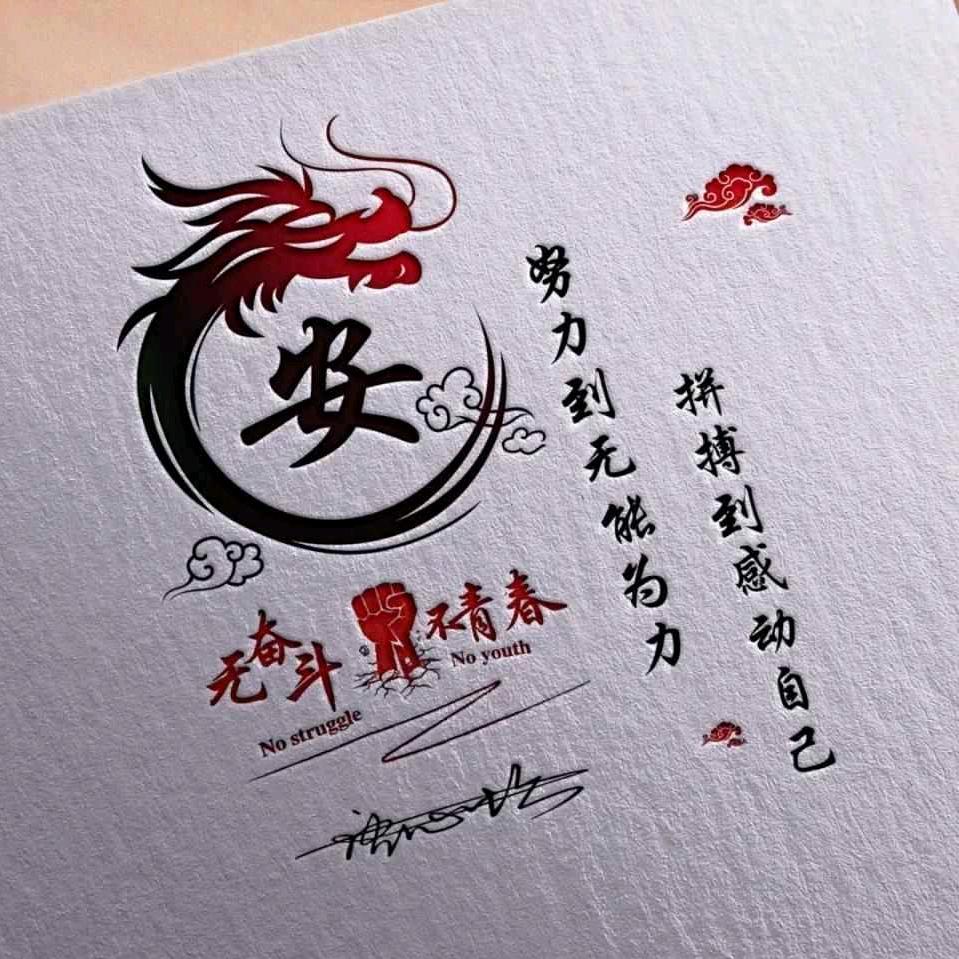 安
努力到无能为力
拼搏到感动自己
无奋斗 不青春
No struggle
No youth